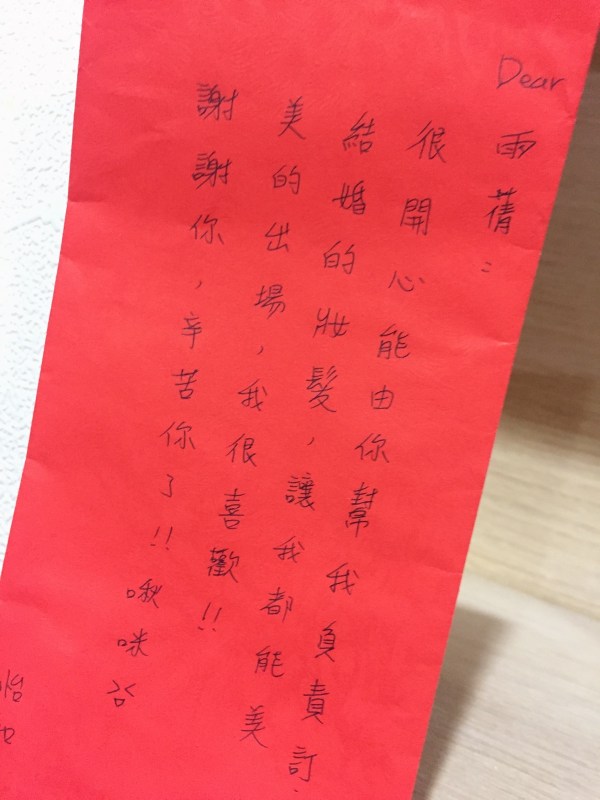 Dear
雨蒨：
很開心能由你幫我負責訂
結婚的妝髮，讓我都能美
美的出場，我很喜歡!!
謝謝你，辛苦你了!! 啾咪
怡